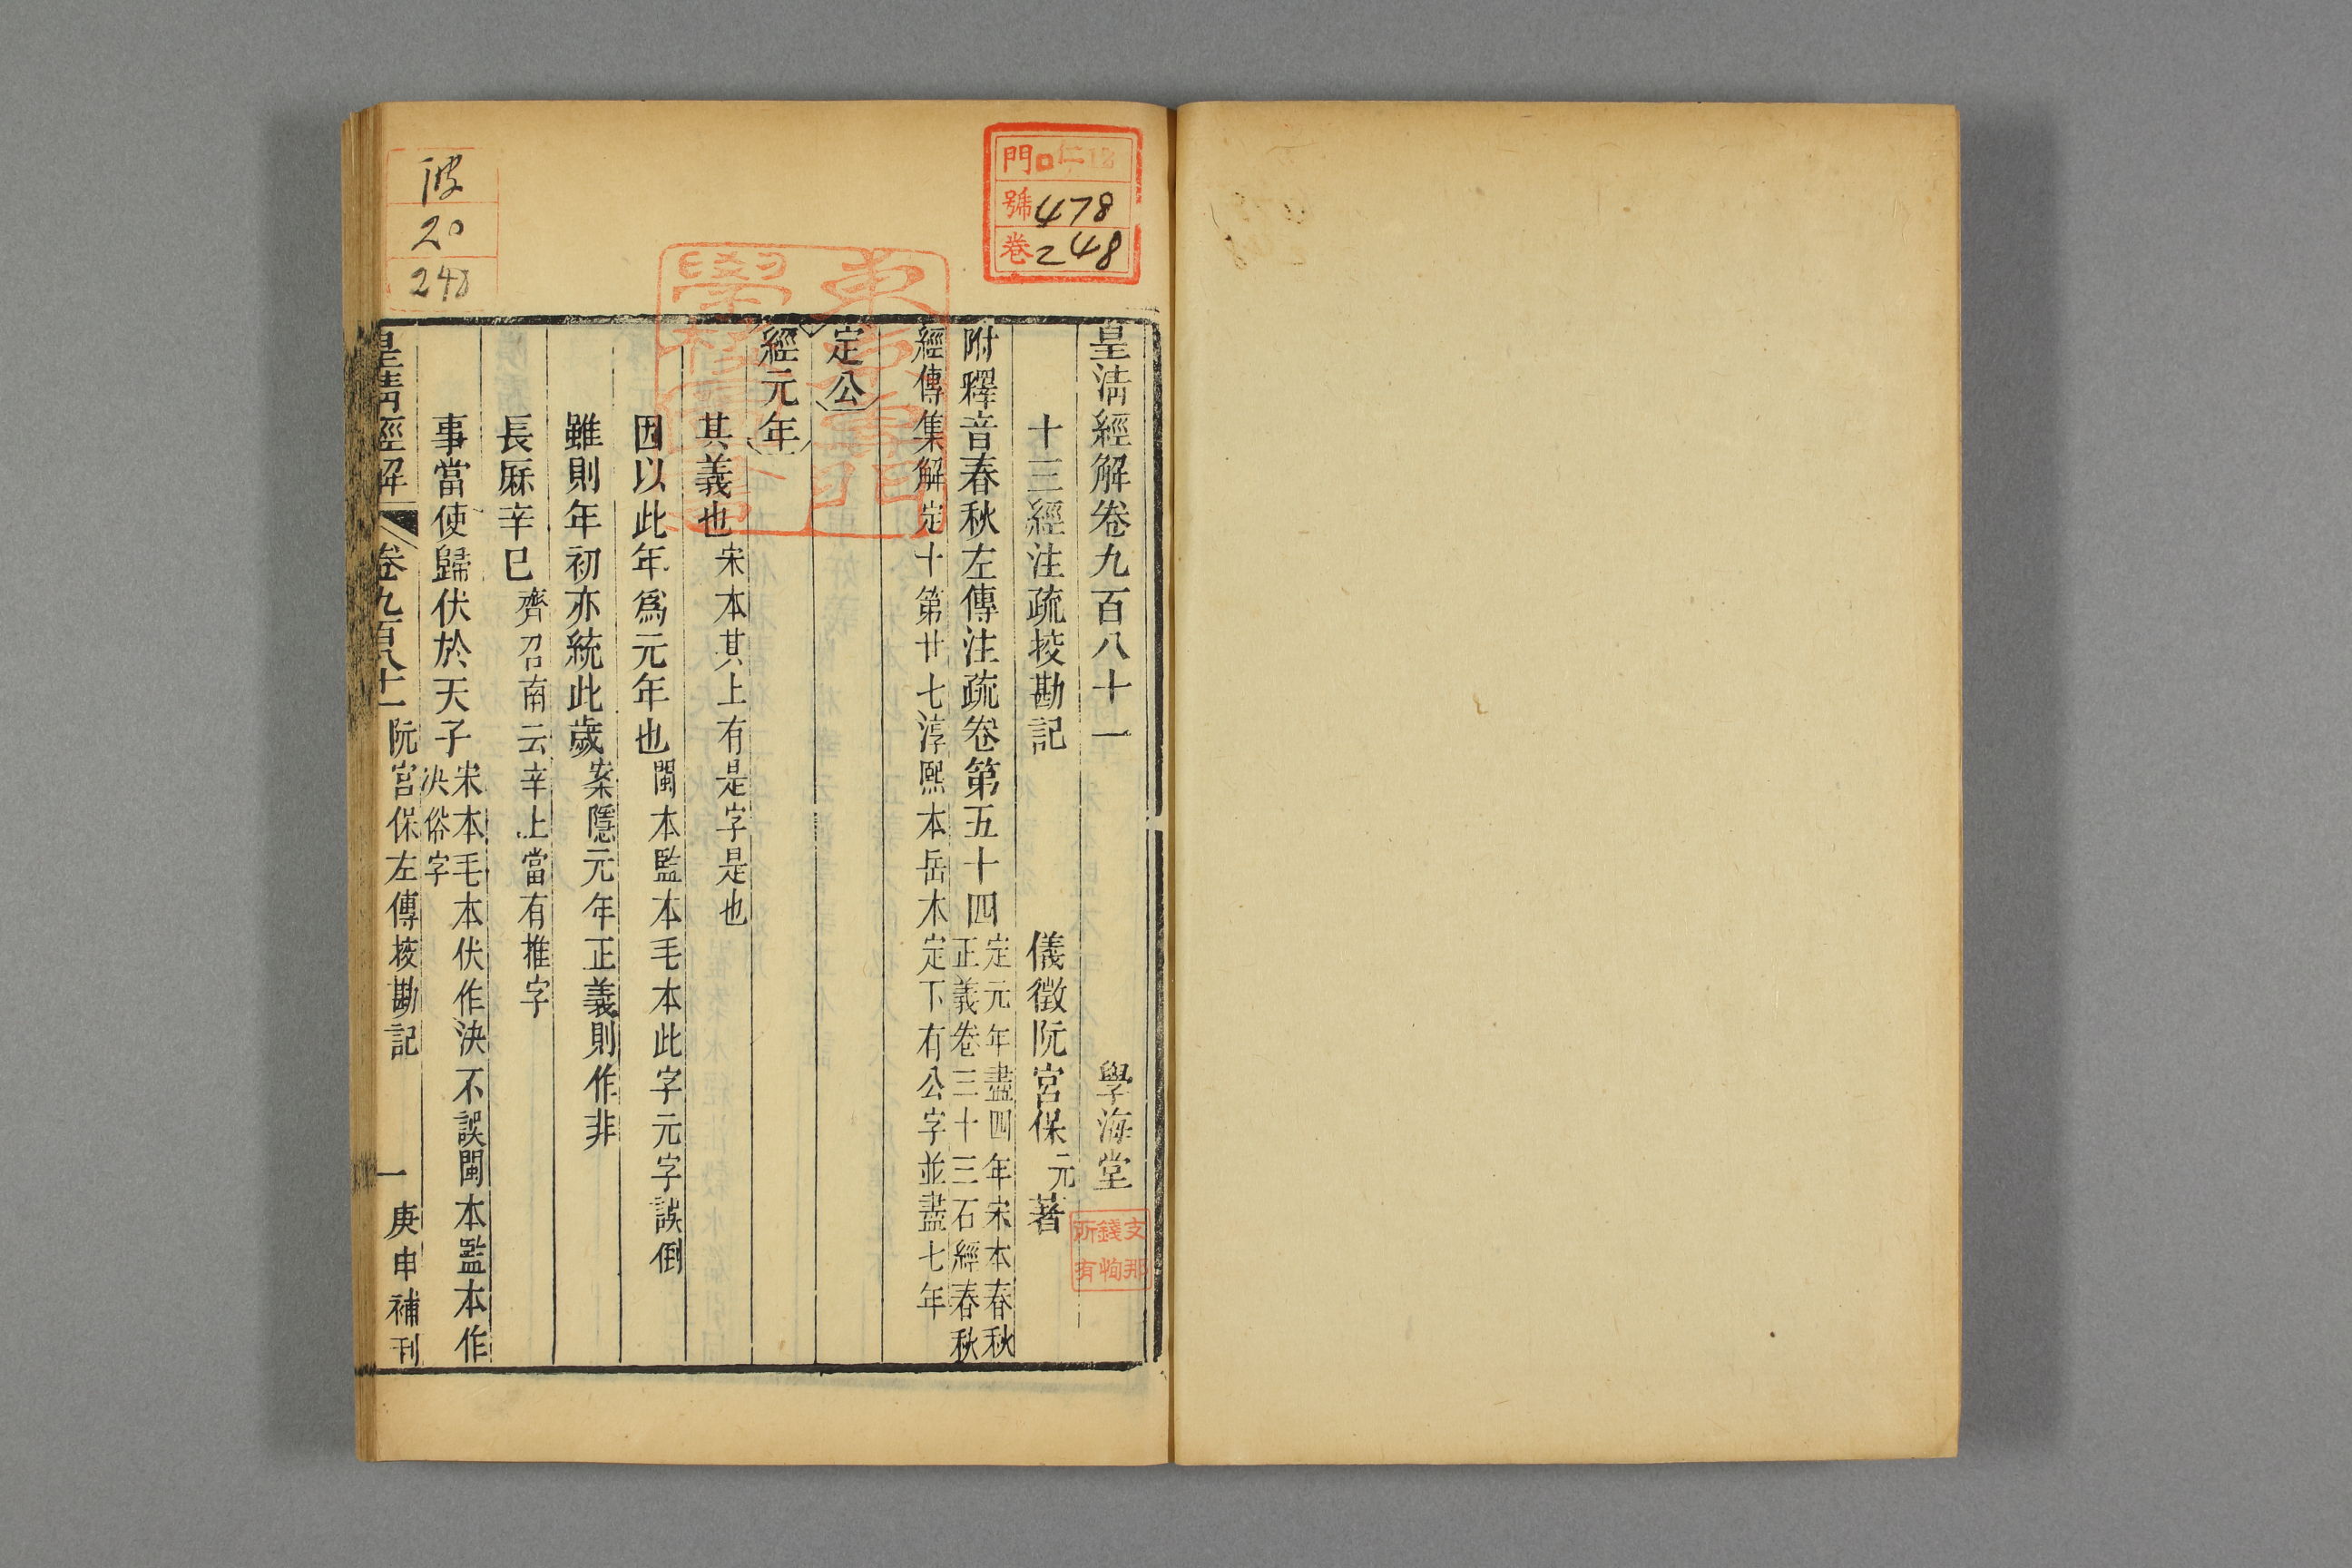 皇淸經解卷九百八十一 學海堂
十三經注疏挍勘記 儀徵阮宮保元著
附釋音春秋左傳注疏卷第五十四 定元年盡四年宋本春秋
正義卷三十三石經春秋
經傳集解定十第廿七淳熙本岳本定下有公字並盡七年
定公
經元年
其義也 宋本其上有是字是也
因以此年爲元年也 閩本監本毛本此字元字誤倒
雖則年初亦統此歲 案隱元年正義則作非
長厤辛巳 齊召南云辛上當有推字
事當使歸伏於天子 宋本毛本伏作決不誤閩本監本作
決俗字
皇淸經解 卷九百八十一 阮宮保左傳挍勘記 一 庚申補刊
門 口 仁12
號 478
卷 248
20
248
支那
錢恂
所有